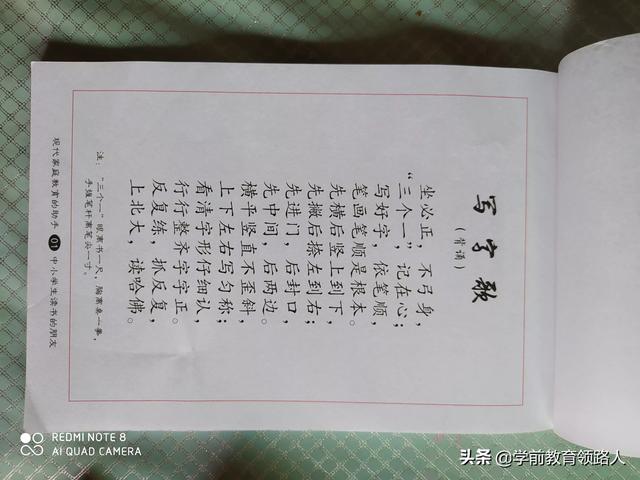 写字歌
(背诵)
坐必正，不弓身，
“三个一”，记在心；
写好字，依笔顺，
笔画笔顺是根本。
先横后竖上到下，
先撇后捺左到右；
先进门，后封口，
先中间，后两边。
横平竖直不歪斜，
上下左右写匀称；
看清字形仔细认，
行行整齐字字正。
反复练，抓反复，
上北大，读哈佛。
注：“三个一”眼离书一尺，胸离桌一拳，
手握笔杆离笔尖一寸。
现代家庭教育的助手 01 中小学生读书的朋友
REDMI NOTE 8
AI QUAD CAMERA
头条 @学前教育领路人